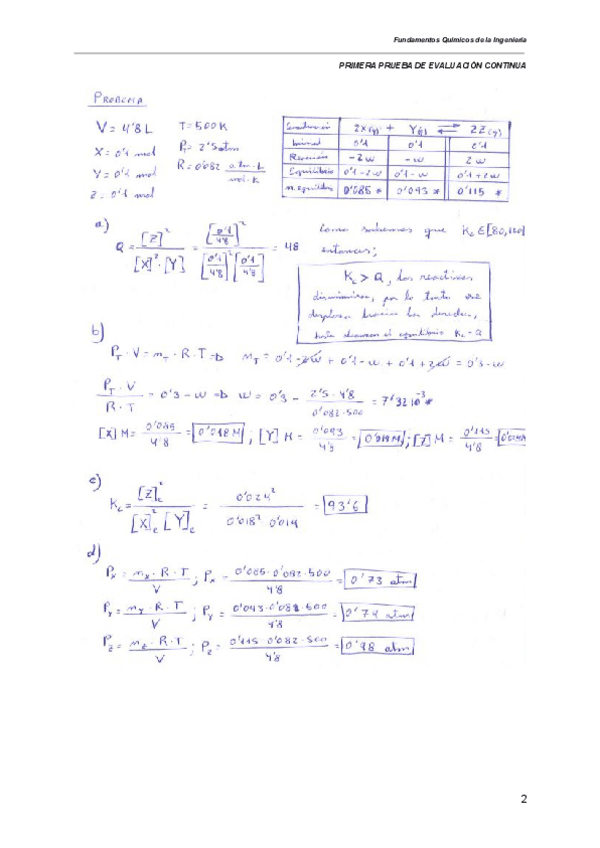 Fundamentos Químicos de la Ingeniería
PRIMERA PRUEBA DE EVALUACIÓN CONTINUA
PROBLEMA
V = 4'8 L T = 500 K
X = 0'1 mol P_T = 2'5 atm
Y = 0'1 mol R = 0'082 atm·L / mol·K
Z = 0'1 mol
2X(g) + Y(g) ⇌ 2Z(g)
Inicial 0'1 0'1 0'1
Reacción -2w -w 2w
Equilibrio 0'1-2w 0'1-w 0'1+2w
n. equilibrio 0'085 * 0'093 * 0'115 *
a)
Q = [Z]² / [X]²·[Y] = [0'1/4'8]² / [0'1/4'8]² [0'1/4'8] = 48
Como sabemos que Kc ∈ [80,120]
entonces;
Kc > Q, los reactivos
disminuirán, por lo tanto se
desplaza hacia la derecha,
hasta alcanzar el equilibrio Kc = Q
b)
P_T · V = n_T · R · T => n_T = 0'1 - 2w + 0'1 - w + 0'1 + 2w = 0'3 - w
P_T · V / R · T = 0'3 - w => w = 0'3 - 2'5 · 4'8 / 0'082 · 500 = 7'32 10⁻³ *
[X] M = 0'085 / 4'8 = 0'018 M ; [Y] M = 0'093 / 4'8 = 0'019 M ; [Z] M = 0'115 / 4'8 = 0'024 M
c)
Kc = [Z]²e / [X]²e [Y]e = 0'024² / 0'018² · 0'019 = 93'6
d)
P_X = n_X · R · T / V ; P_X = 0'085 · 0'082 · 500 / 4'8 = 0'73 atm
P_Y = n_Y · R · T / V ; P_Y = 0'093 · 0'082 · 500 / 4'8 = 0'79 atm
P_Z = n_Z · R · T / V ; P_Z = 0'115 · 0'082 · 500 / 4'8 = 0'98 atm
2